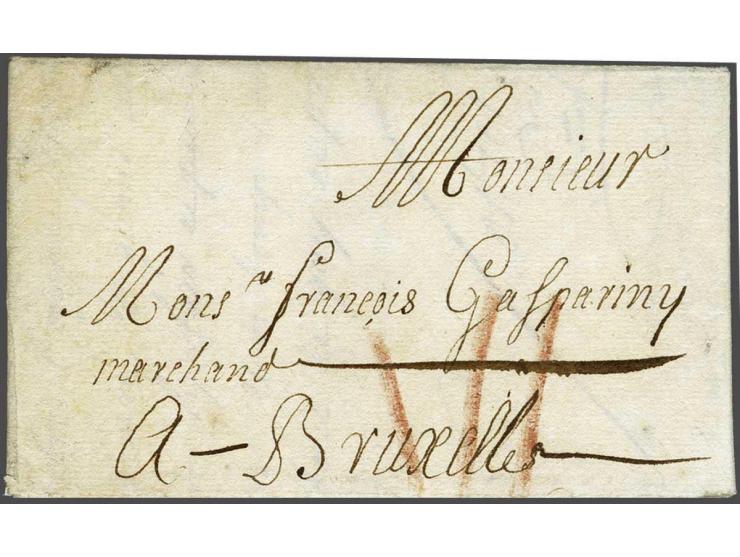 Monsieur
Mons.ur françois Gaspariny
marchand
A - Bruxelles
VII